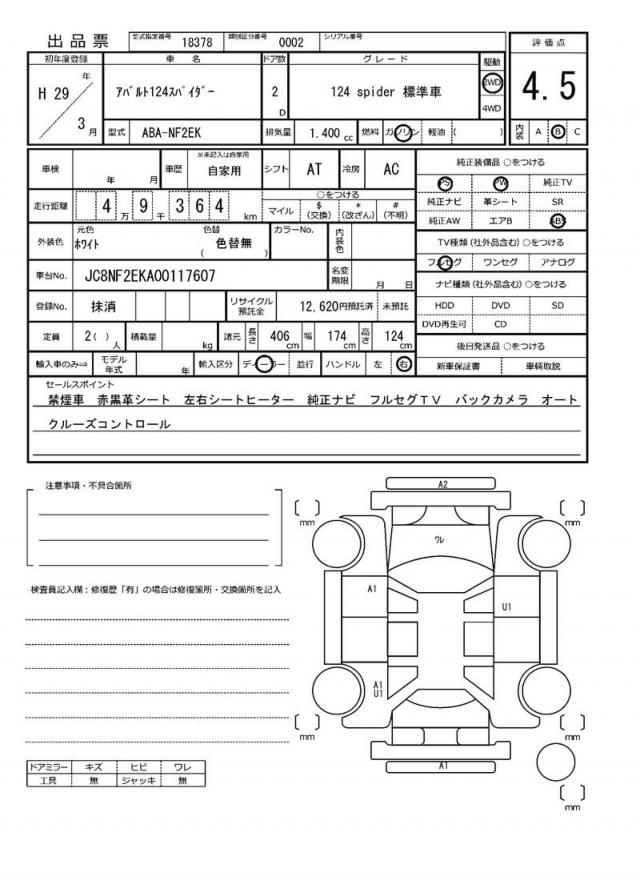 出品票 型式指定番号 18378 類別区分番号 0002 シリアル番号
初年度登録 車名 ドア数 グレード 駆動 評価点
H 29 年 3 月 ｱﾊﾞﾙﾄ124ｽﾊﾟｲﾀﾞｰ 2 D 124 spider 標準車 2WD 4WD 4.5
型式 ABA-NF2EK 排気量 1.400 cc 燃料 ガソリン 軽油 ( ) 内装 A B C
車検 年 月 車歴 ※未記入は自家用 自家用 シフト AT 冷房 AC
純正装備品 ○をつける
PS PW 純正TV
純正ナビ 革シート SR
純正AW エアB ABS
走行距離 4 万 9 千 3 6 4 km ○をつける
マイル $ (交換) * (改ざん) # (不明)
外装色 元色 ﾎﾜｲﾄ 色替 ( 色替無 ) カラーNo. 内装色
TV種類 (社外品含む) ○をつける
フルセグ ワンセグ アナログ
車台No. JC8NF2EKA00117607 名変期限 月 日
ナビ種類 (社外品含む) ○をつける
HDD DVD SD
DVD再生可 CD
登録No. 抹消 リサイクル預託金 12,620円預託済 未預託
定員 2( ) 人 積載量 kg 諸元 長さ 406 cm 幅 174 cm 高さ 124 cm
後日発送品 ○をつける
新車保証書 車輌取説
輸入車のみ⇒ モデル年式 年 輸入区分 ディーラー 並行 ハンドル 左 右
セールスポイント
禁煙車 赤黒革シート 左右シートヒーター 純正ナビ フルセグTV バックカメラ オート
クルーズコントロール
注意事項・不具合箇所
検査員記入欄：修復歴「有」の場合は修復箇所・交換箇所を記入
A2
mm
mm
ﾜﾚ
A1
U1
A1
U1
mm
mm
A1
mm
ドアミラー キズ ヒビ ワレ
工具 無 ジャッキ 無